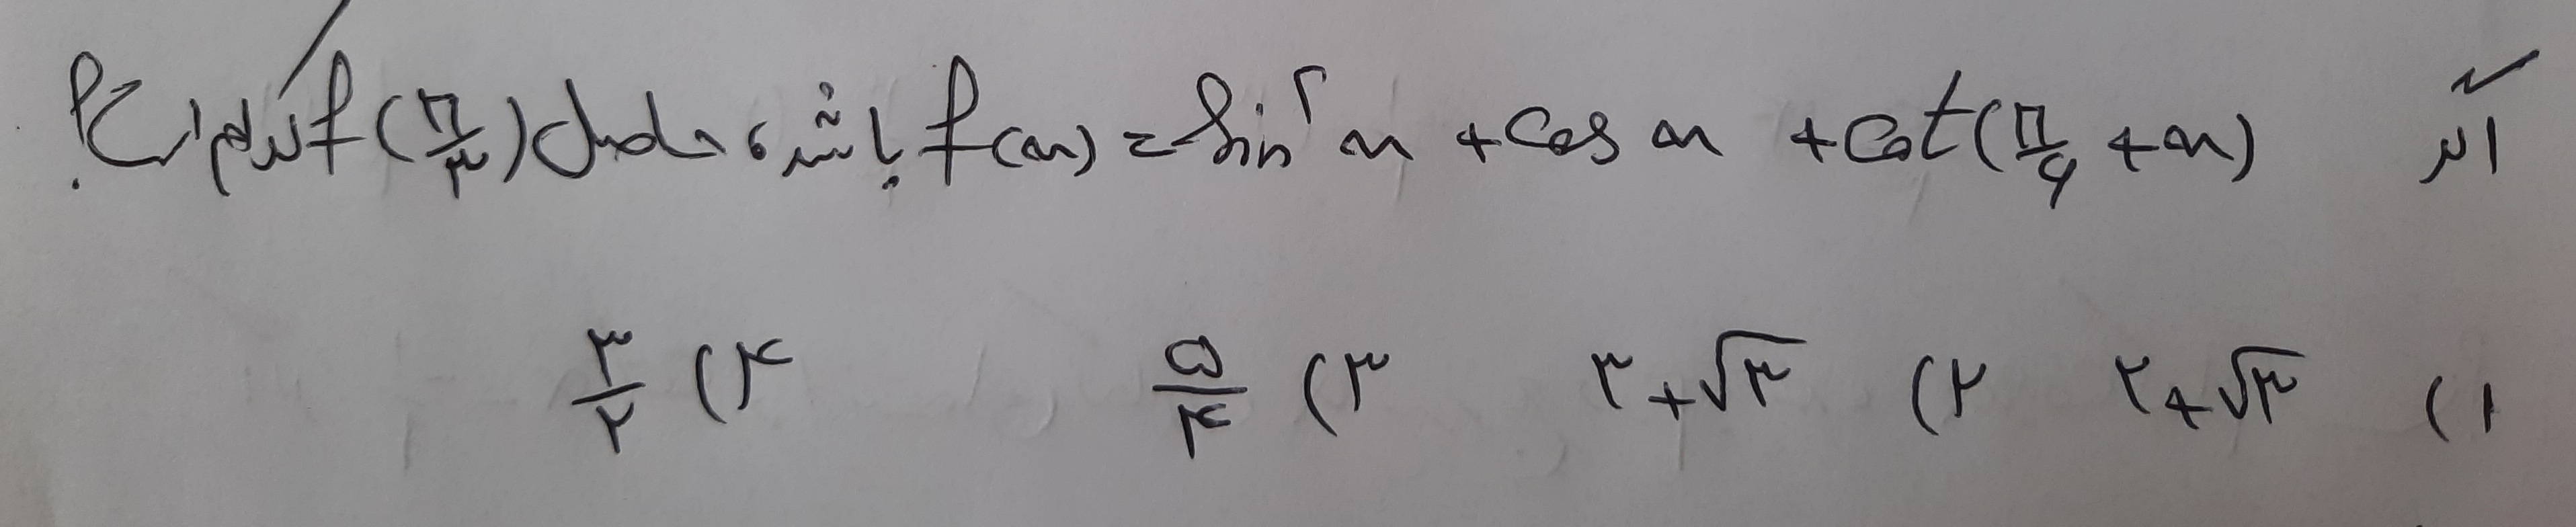 اگر f(x) = sin² x + cos x + cot(π/۶ + x) باشد، حاصل f(π/۳) کدام است؟
۱) ۲+√۳ ۲) ۳+√۳ ۳) ۵/۴ ۴) ۳/۲